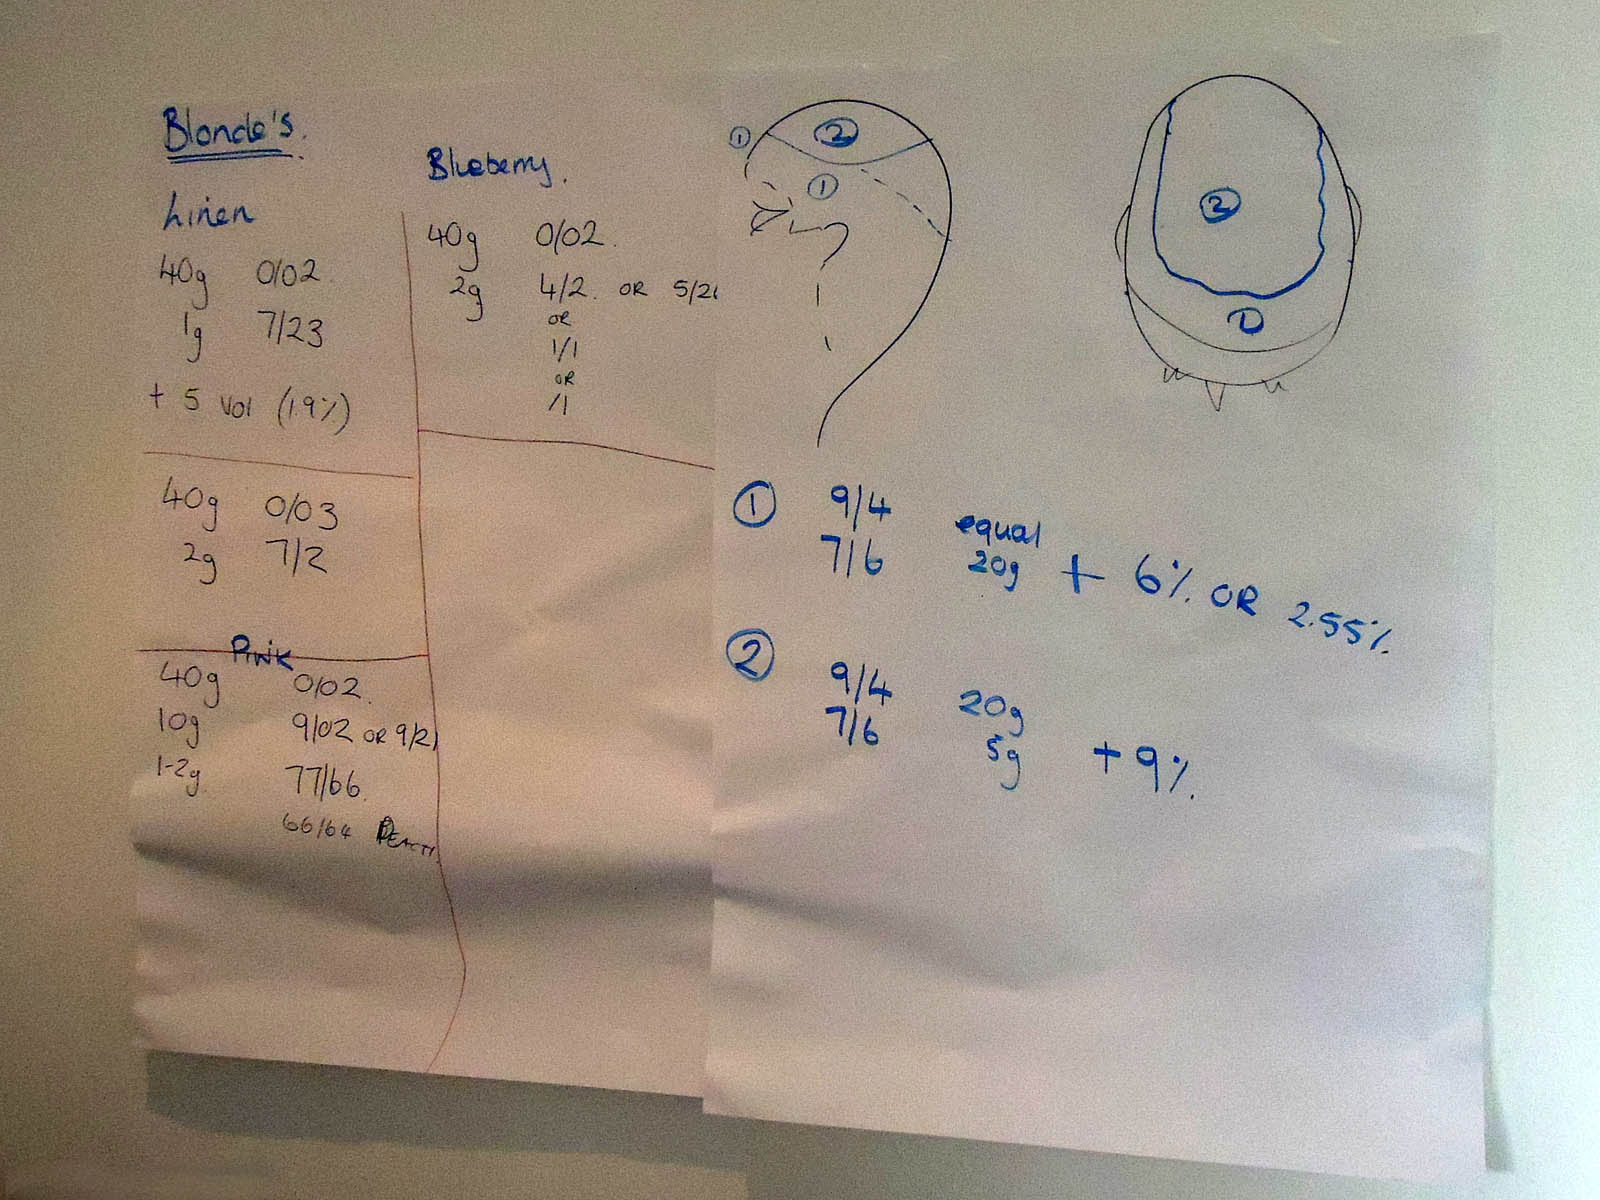 Blonde's.
Linen
40g 0/02
1g 7/23
+ 5 vol (1.9%)
40g 0/03
2g 7/2
Pink
40g 0/02.
10g 9/02 OR 9/21
1-2g. 77/66.
66/64
Blueberry.
40g 0/02.
2g 4/2. OR
OR
1/1
OR
/1
① ②
①
②
①
① 9/4 equal
7/6 20g + 6% OR 2.55%.
② 9/4 20g
7/6 5g + 9%.